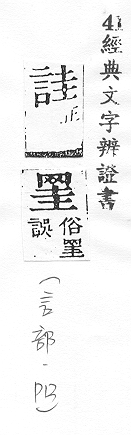 4.經典文字辨證書
詿正
罣俗罣誤
(言部.P13)